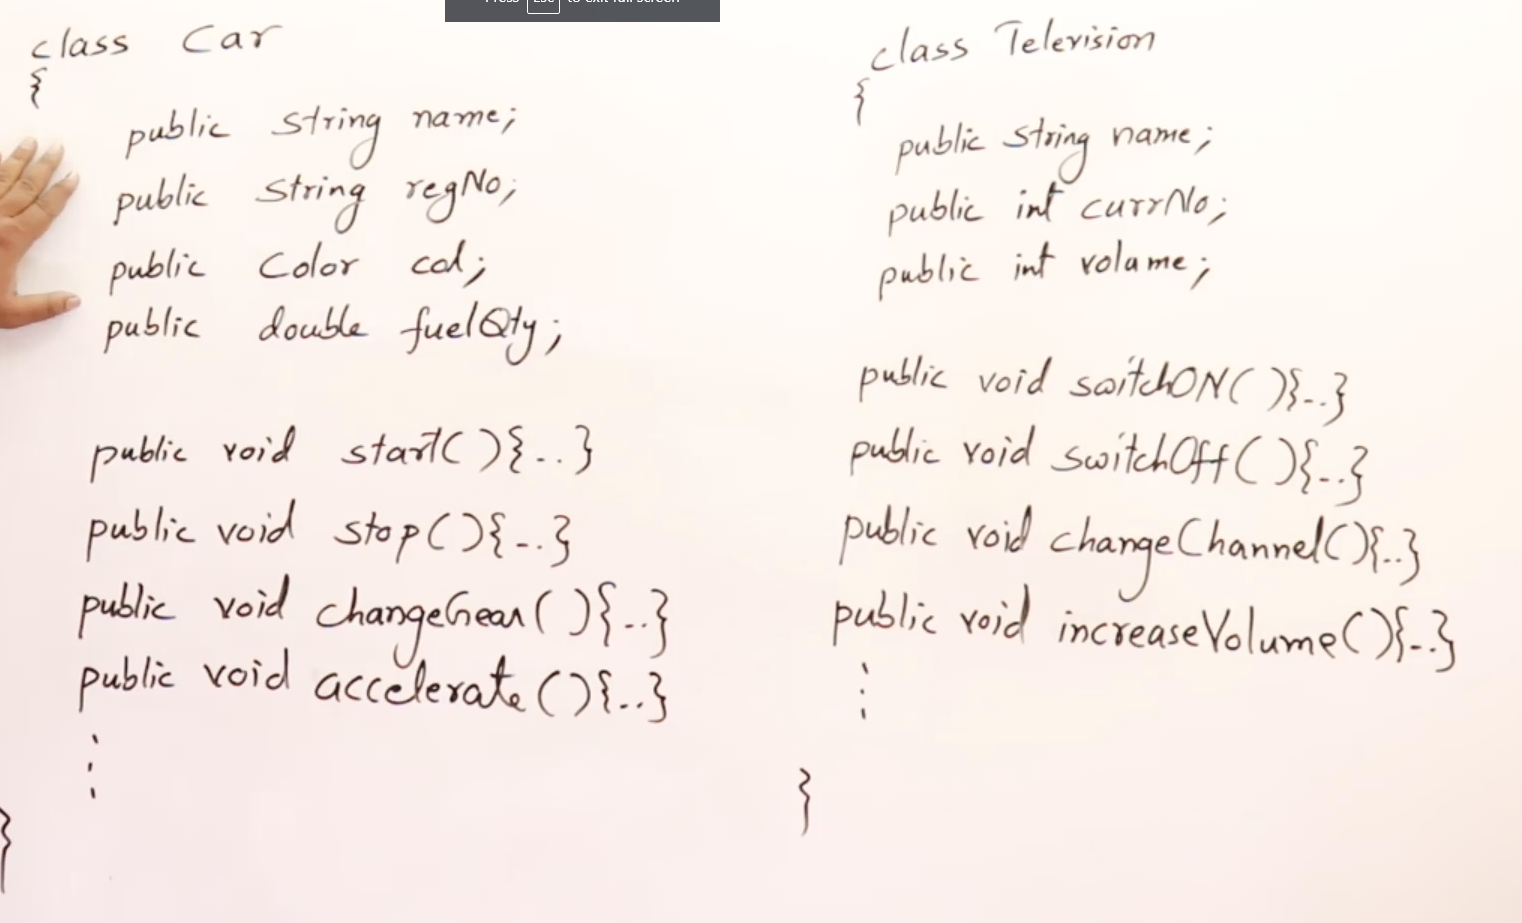 Press Esc to exit full screen
class Car
{
public String name;
public String regNo;
public Color col;
public double fuelQty;
public void start(){...}
public void stop(){...}
public void changeGear(){...}
public void accelerate(){...}
}
class Television
{
public String name;
public int currNo;
public int volume;
public void switchON(){...}
public void switchOff(){...}
public void changeChannel(){...}
public void increaseVolume(){...}
}